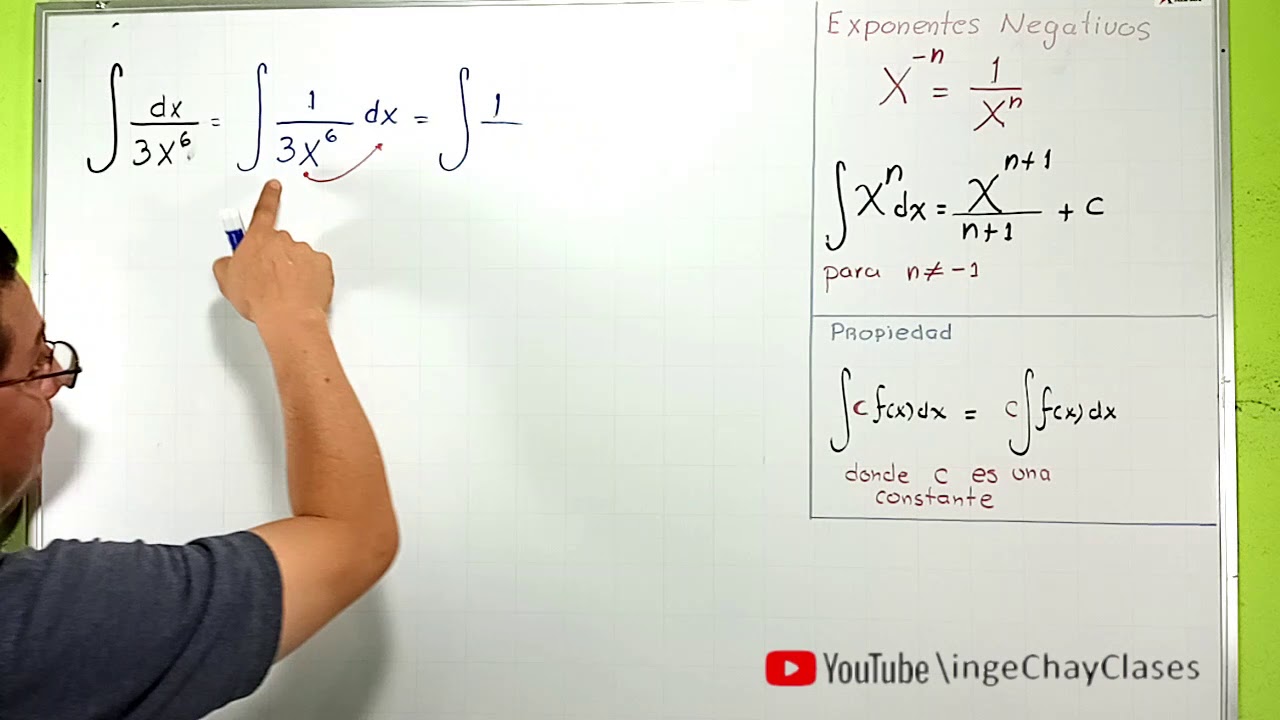 ∫ dx/3x⁶ = ∫ 1/3x⁶ dx = ∫ 1/
Exponentes Negativos
x⁻ⁿ = 1/xⁿ
∫ xⁿ dx = xⁿ⁺¹/n+1 + c
para n ≠ -1
Propiedad
∫ c f(x) dx = c ∫ f(x) dx
donde c es una
constante
YouTube \ingeChayClases